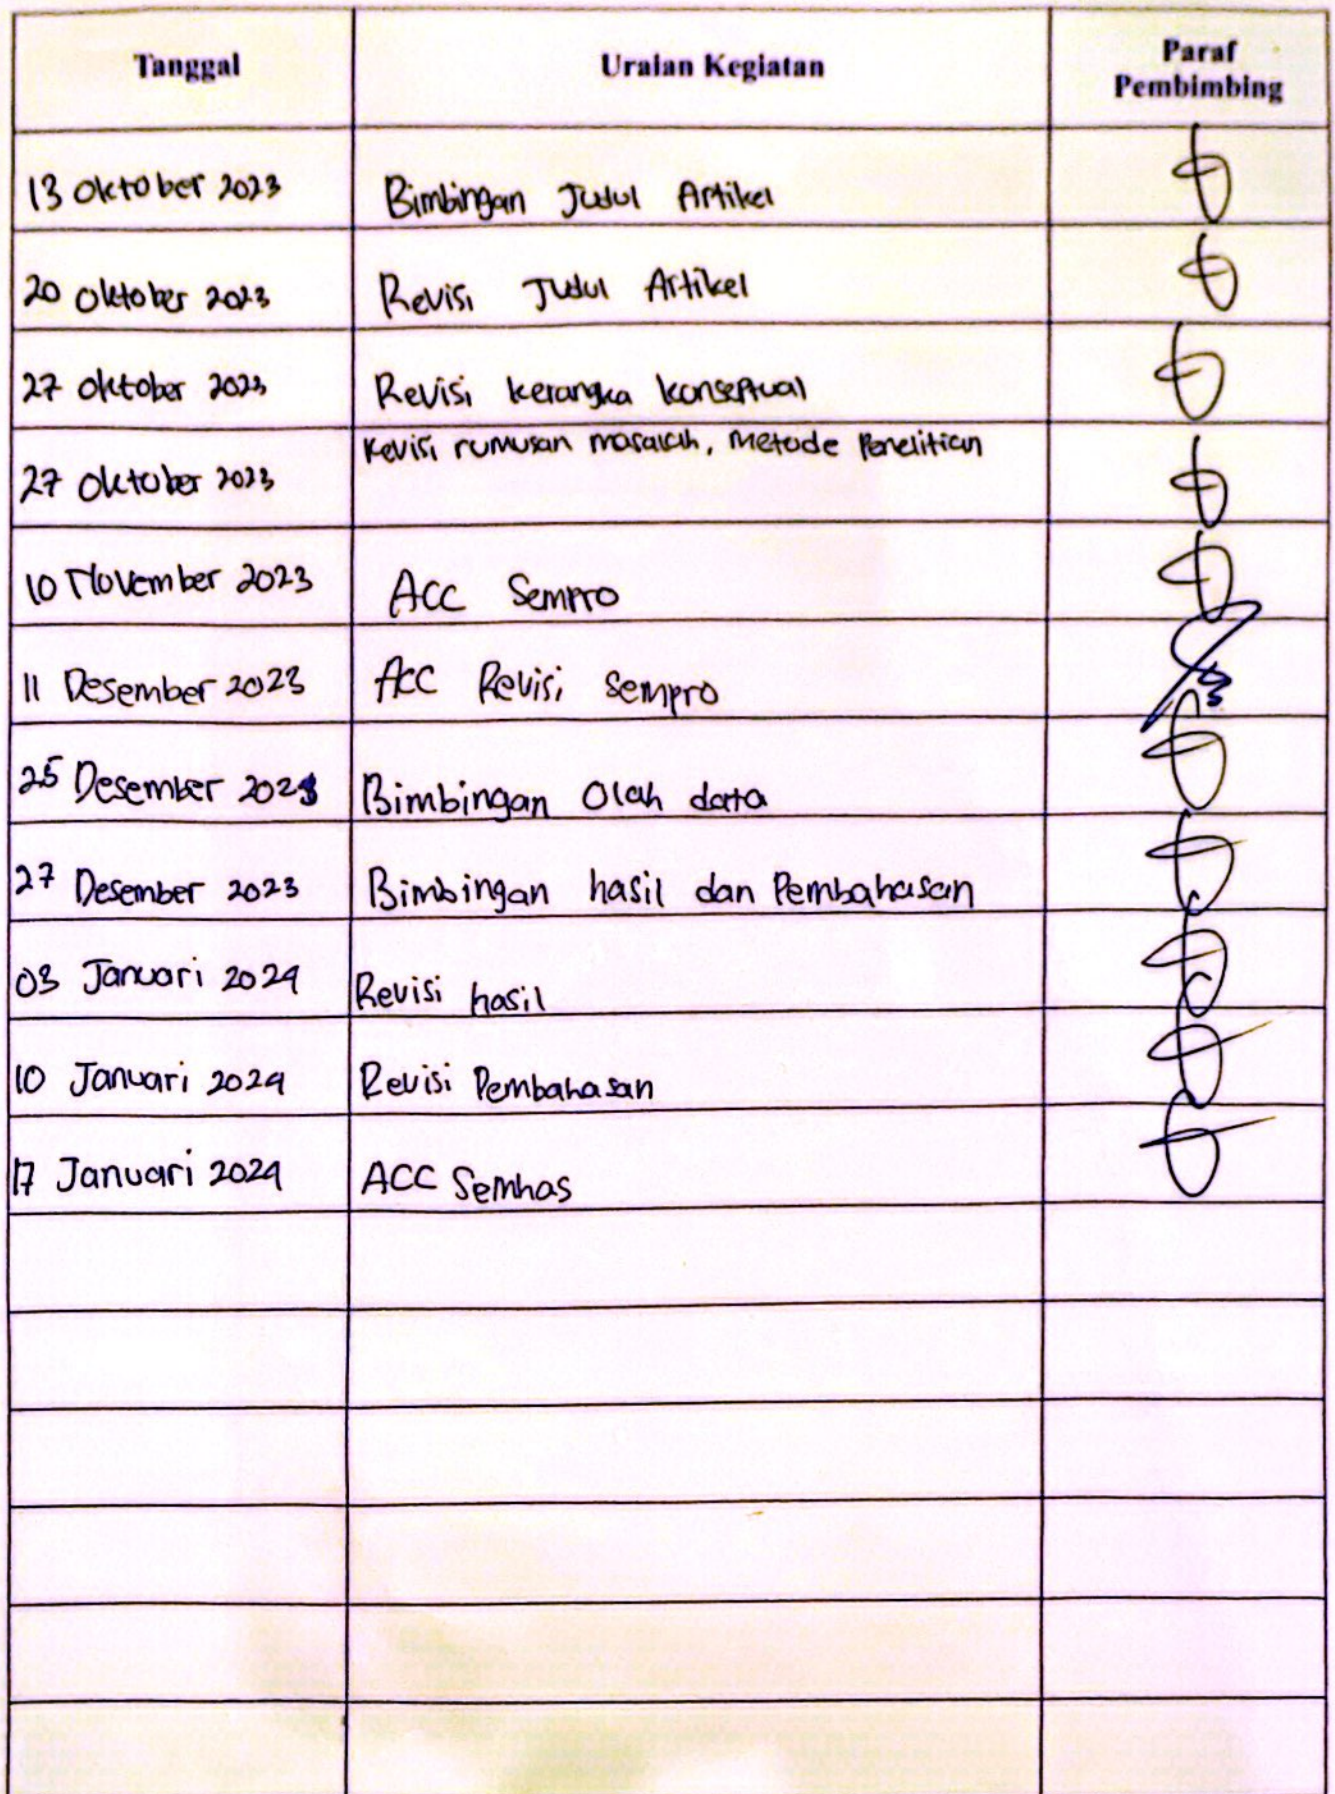 Tanggal Uraian Kegiatan Paraf
Pembimbing
13 Oktober 2023 Bimbingan Judul Artikel
20 Oktober 2023 Revisi Judul Artikel
27 Oktober 2023 Revisi kerangka konseptual
Revisi rumusan masalah, Metode Penelitian
27 Oktober 2023
10 November 2023 ACC Sempro
11 Desember 2023 ACC Revisi Sempro
25 Desember 2023 Bimbingan Olah data
27 Desember 2023 Bimbingan hasil dan Pembahasan
03 Januari 2024 Revisi hasil
10 Januari 2024 Revisi Pembahasan
17 Januari 2024 ACC Semhas